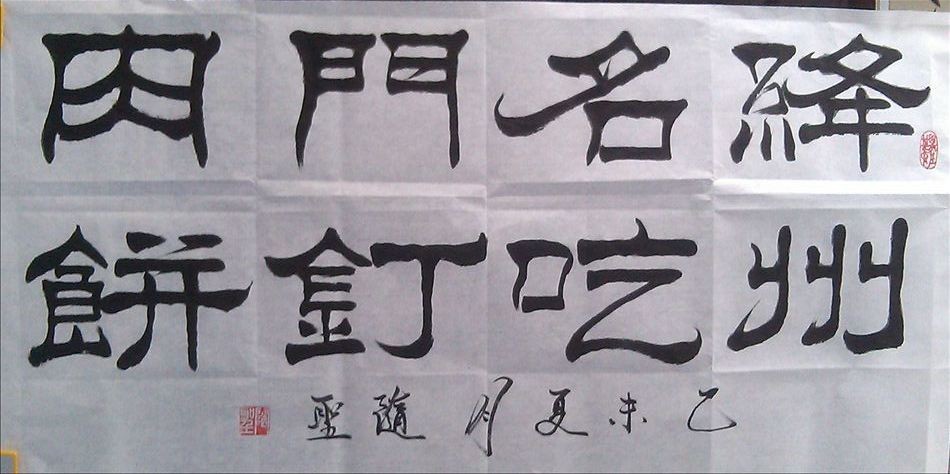 絳州
名吃
門釘
肉餅
乙未夏月隨聖